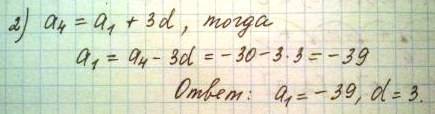 2) a₄ = a₁ + 3d, тогда
a₁ = a₄ - 3d = -30 - 3·3 = -39
Ответ: a₁ = -39, d = 3.